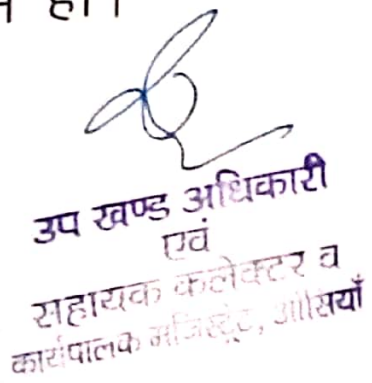 हो।
उप खण्ड अधिकारी
एवं
सहायक कलेक्टर व
कार्यपालक मजिस्ट्रेट, ओसियाँ